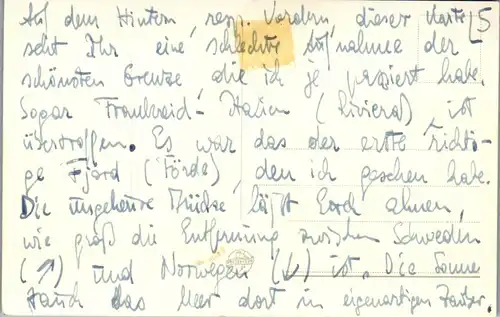 Auf dem Hintern, resp. Vordern, dieser Karte
seht Ihr eine schlechte Aufnahme der
schönsten Grenze, die ich je passiert habe.
Sogar Frankreich-Italien (Riviera) ist
übertroffen. Es war das der erste, richti-
ge Fjord (Förde), den ich gesehen habe.
Die ungeheure Brücke, läßt Euch ahnen,
wie groß die Entfernung zwischen Schweden
(↗) und Norwegen (↓) ist. Die Sonne
taucht das Meer dort in eigenartigen Zauber.
5